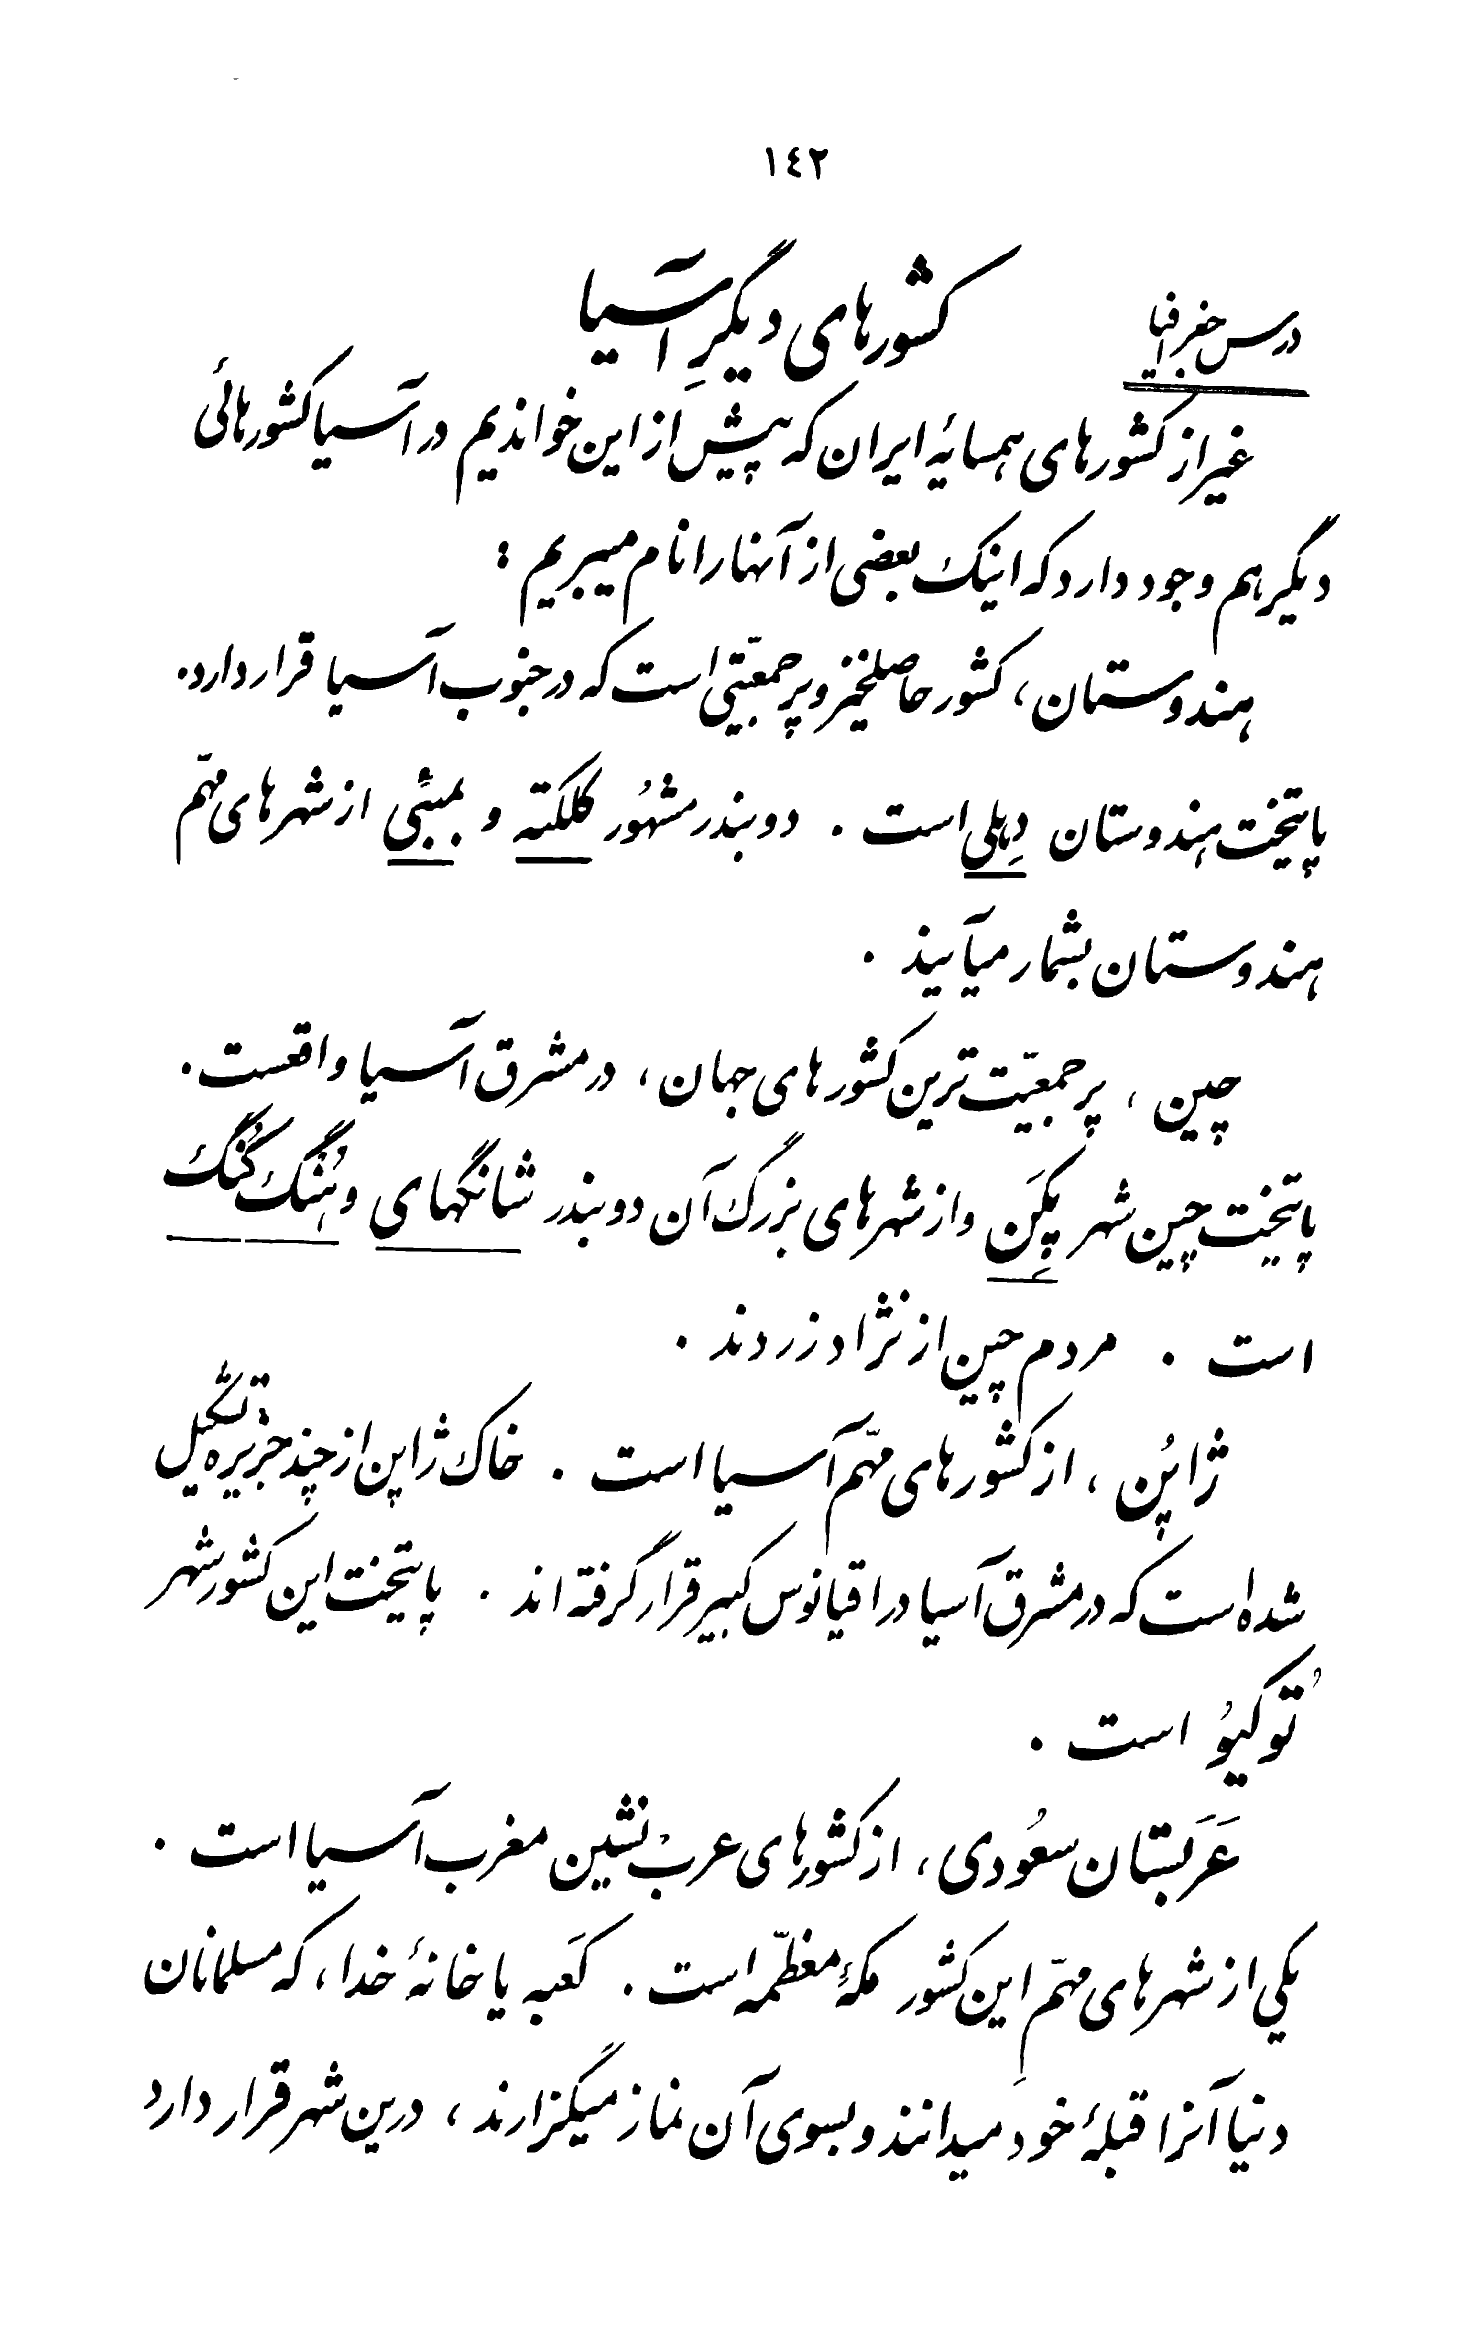 ۱٤۲
درس جغرافیا
کشورهای دیگرِ آسیا
غیر از کشورهای همسایهٔ ایران که پیش از این خواندیم در آسیا کشورهائی
دیگر هم وجود دارد که اینک بعضی از آنها را نام میبریم :
هندوستان ، کشور حاصلخیز و پر جمعیّتی است که در جنوب آسیا قرار دارد .
پایتخت هندوستان دِهلی است . دو بندر مشهُور کلکته و بمبئی از شهرهای مهّم
هندوستان بشمار میآیند .
چین ، پر جمعیّت ترین کشورهای جهان ، در مشرق آسیا واقعست .
پایتخت چین شهر پِکَن و از شهرهای بزرگ آن دو بندر شانگهای و هُنگ کُنگ
است . مردم چین از نژاد زردند .
ژاپُن ، از کشورهای مهّم آسیا است . خاک ژاپن از چند جزیره تشکیل
شده است که در مشرق آسیا در اقیانوس کبیر قرار گرفته اند . پایتخت این کشور شهر
تُوکیُو است .
عَرَبستان سعُودی ، از کشورهای عربْ نشین مغرب آسیا است .
یکی از شهرهای مهّم این کشور مکهٔ معظّمه است . کعَبه یا خانهٔ خدا ، که مسلمانان
دنیا آنرا قبلهٔ خود میدانند و بسوی آن نماز میگزارند ، درین شهر قرار دارد